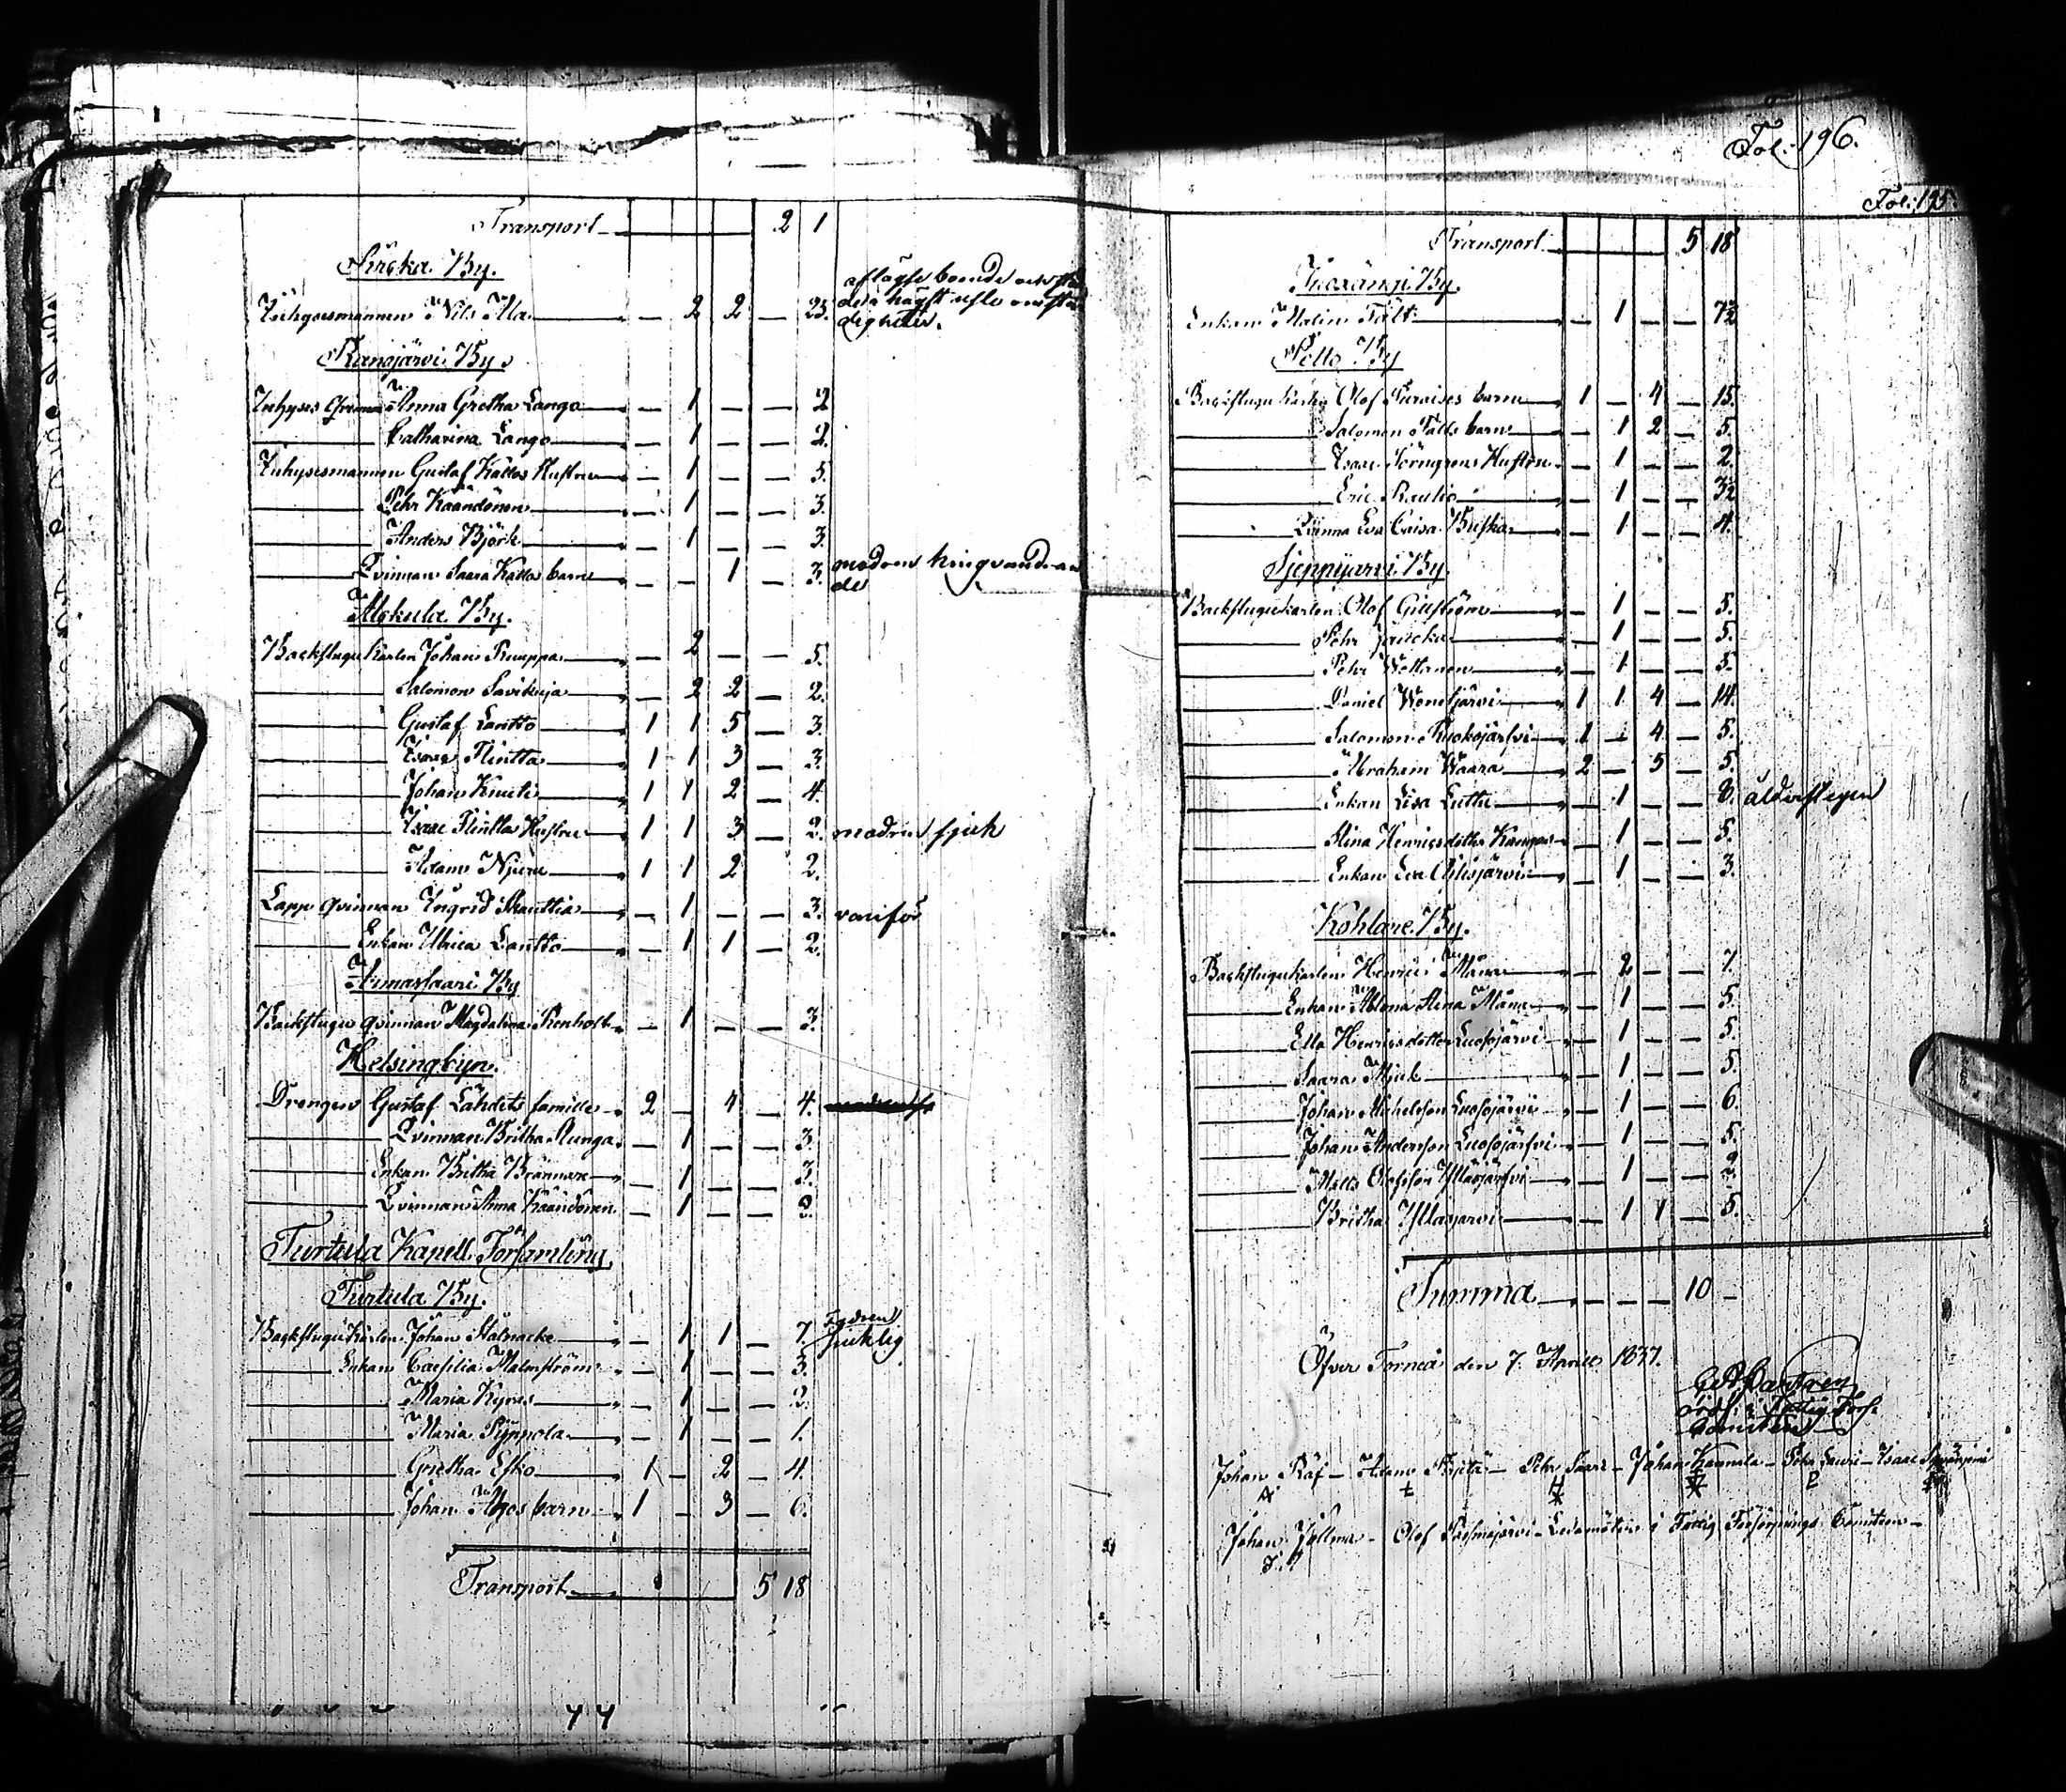 Transport 2 1
Sirčka By.
Inhysesmannen Nils Ala — 2 2 — 25. aflägse boende och
Kansjärvi By.
Inhyses Anna Gretha Lango — 1 — — 2
Catharina Lango — 1 — — 2.
Inhysesmannen Gustaf Kallos Hustru — 1 — — 5.
Pehr Kaandonen — 1 — — 3.
Anders Björk — 1 — — 3.
Qvinnan Saara Kallos barn — — 1 — 3. modren kringvandran
de
Alskula By.
Backstugu Karlen Johan Ruuppa — 2 — — 5.
Salomon Savikuja — 2 2 — 2.
Gustaf Lantto 1 1 5 — 3.
Isaac Flintta 1 1 3 — 3.
Johan Knuti 1 1 2 — 4.
Isaac Flintta Hustru 1 1 3 — 2. modren sjuk
Adam Niemi 1 1 2 2.
Lapp qvinnan Ingrid Skanttia — 1 — — 3. vanför
Enkan Ulrica Lantto — 1 1 — 2.
Armassaari By
Backstugu qvinnan Magdalena Renholt — 1 — — 3.
Helsingbyn.
Drengen Gustaf Lahdets famille 2 — 4 — 4.
Qvinnan Britha Runga — 1 — — 3.
Enkan Britha Brännare — 1 — — 3.
Qvinnan Anna Kaandonen — 1 — —
Turtula Kapell Församling
Turtula By.
Backstugu Karlen Johan Stålnacke — 1 1 — 7. Fadren
sjuklig
Enkan Caesilia Malmström — 1 — — 3.
Maria Kyrös — 1 — — 2.
Maria Pyppola — 1 — — 1.
Gretha Esko 1 — 2 — 4.
Johan barn 1 — 3 — 6.
Transport 5 18
44
Fol: 196.
Fol: 195.
Transport 5 18
Juoxangi By.
Enkan Malin Fält — 1 — — 7½
Pello By
Backstugu Karlen Olof barn 1 — 4 — 15.
Salomon Fälts barn — 1 2 — 5.
Isaac Törngrens Hustru — 1 — — 2.
Eric Rautio — 1 — — 3½
Qvinna Eva Caisa Buska — 1 — — 4.
Sieppijärvi By.
Backstugukarlen Olof Gillström — 1 — — 5.
Pehr Jaucka — 1 — — 5.
Pehr Wettanen — 1 — — 5.
Daniel Wenejärvi 1 1 4 — 14.
Salomon Ruokojärfvi 1 — 4 — 5.
Abraham Waara 2 — 5 — 5.
Enkan Lisa Luttu — 1 — — 8. ålderstegen
Stina Henricsdotter Kangas — 1 — — 5.
Enkan Eva — 1 — — 3.
Kohlare By.
Backstugukarlen Henric Mäna — 2 — — 7.
Enkan Stina Mäna — 1 — — 5.
Ella Henricsdotter Luosojärvi — 1 — — 5.
Saara Mjuk — 1 — — 5.
Johan Michelsson Luosojärvi — 1 — — 6.
Johan Andersson Luosojärfvi — 1 — — 5.
Matts Olofsson Ylläsjärfvi — 1 — —
Britha Ylläsjärvi — 1 1 — 5.
Summa 10 —
Öfver Torneå den 7. Aprill 1837.
C A Castren
Ordf: i Fattig Förs:
Comiten
Johan Räf — Adam — Pehr Saari — Johan Kannala — Pehr Lauri — Isaac
Johan — Olof — Ledamöter i Fattig Försörjnings Comiteen —